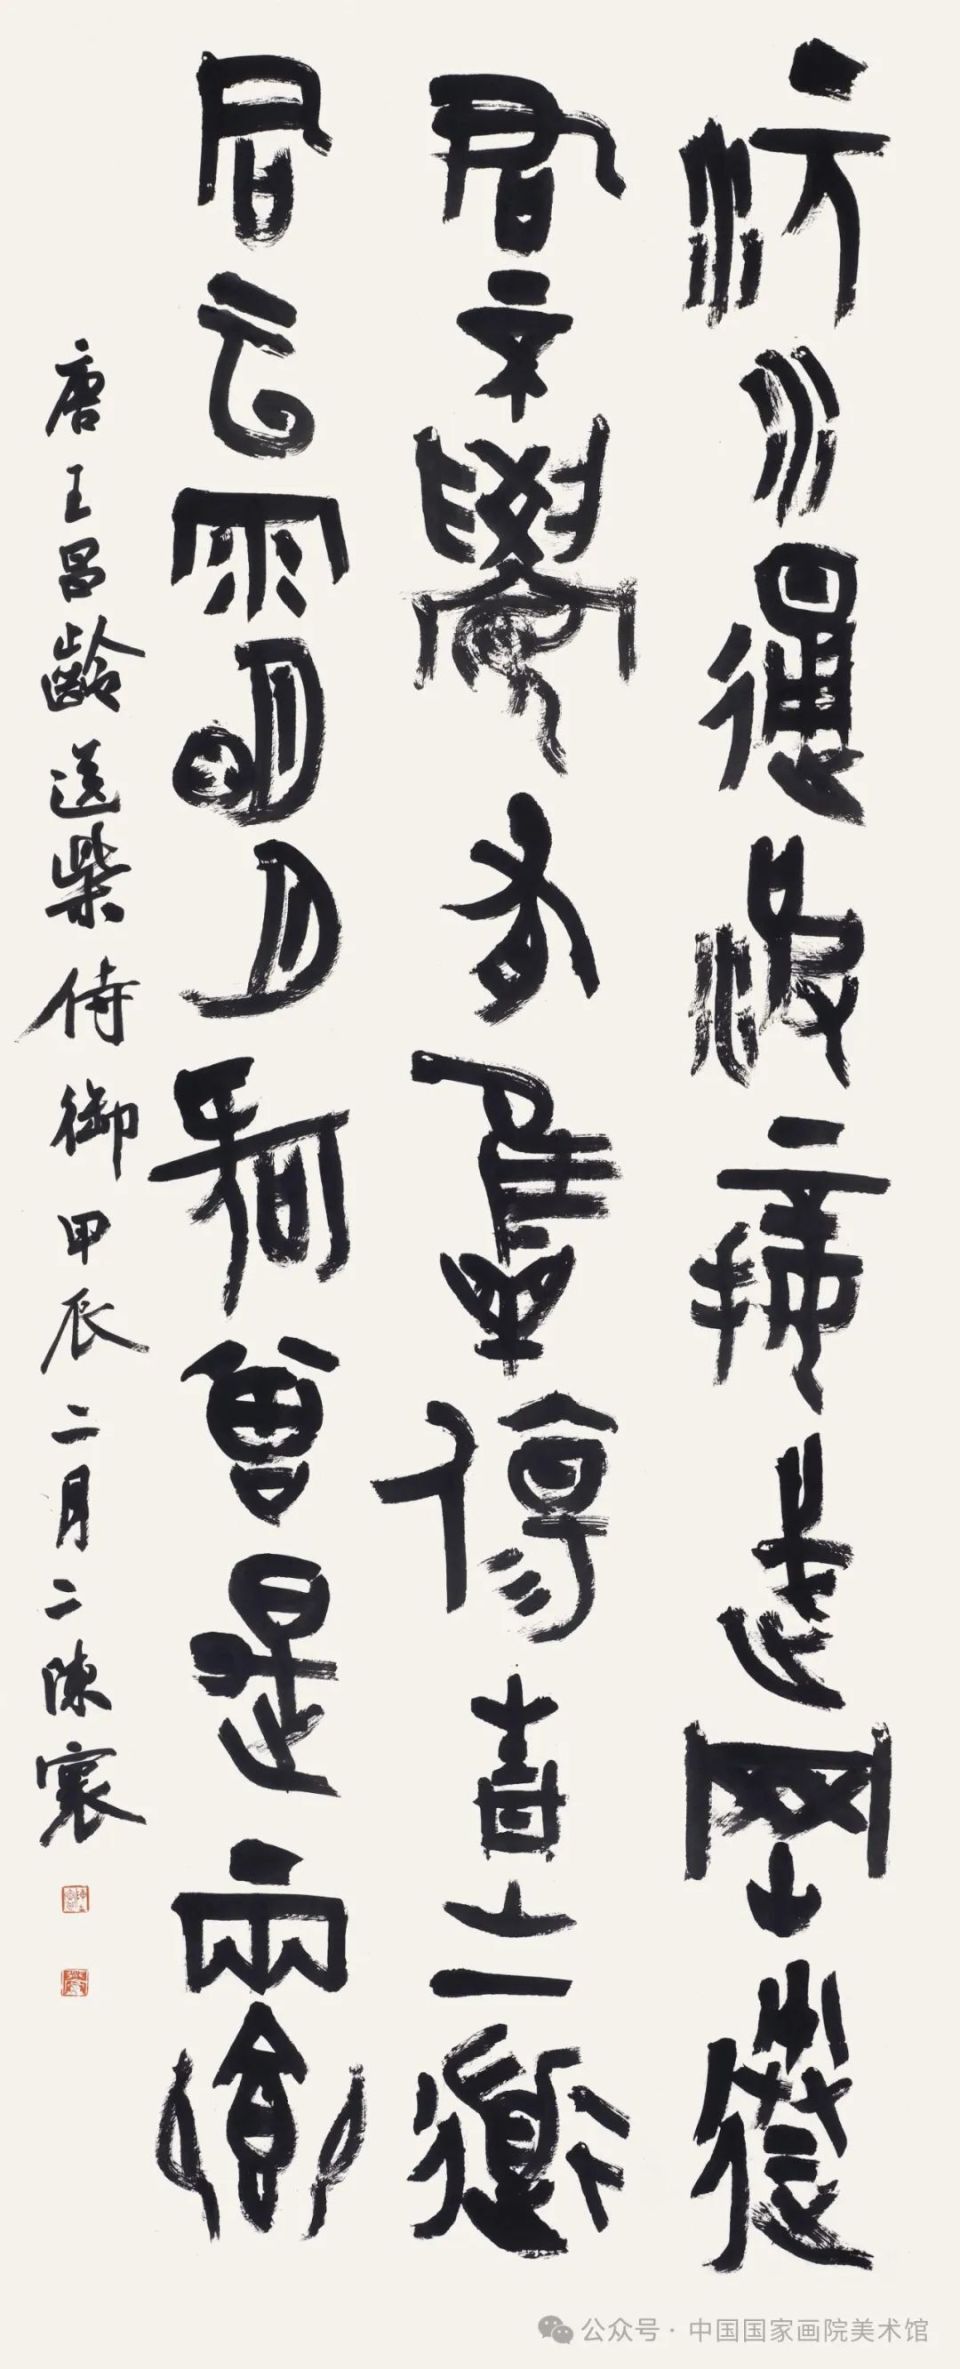 沅水通波接武岡送
君不覺有離傷青山一道
同雲雨明月何曾是兩鄉
唐王昌齡送柴侍御甲辰二月二陳
公众号 · 中国国家画院美术馆